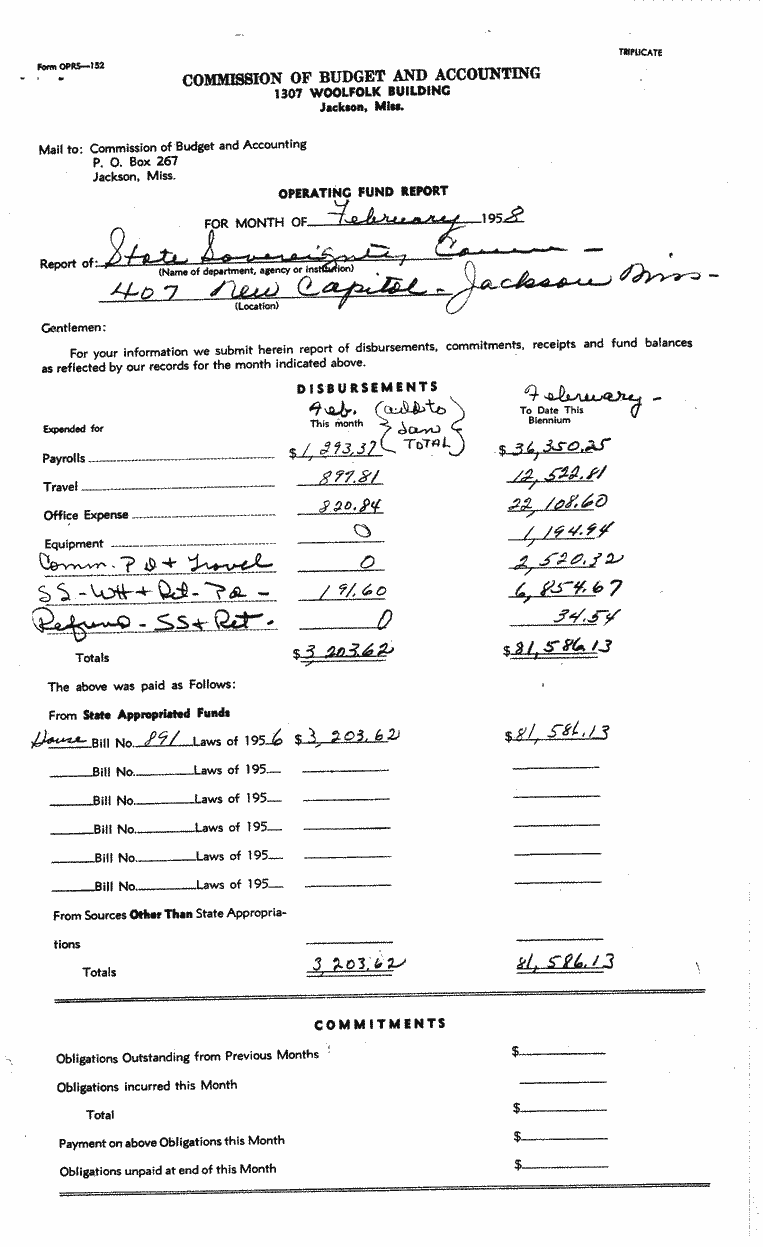 Form OPRS—152
TRIPLICATE
COMMISSION OF BUDGET AND ACCOUNTING
1307 WOOLFOLK BUILDING
Jackson, Miss.
Mail to: Commission of Budget and Accounting
P. O. Box 267
Jackson, Miss.
OPERATING FUND REPORT
FOR MONTH OF February 1958
Report of: State Sovereignty Comm —
(Name of department, agency or institution)
407 New Capitol - Jackson Miss -
(Location)
Gentlemen:
For your information we submit herein report of disbursements, commitments, receipts and fund balances
as reflected by our records for the month indicated above.
DISBURSEMENTS
Feb. (add to Jan TOTAL) February -
Expended for This month To Date This Biennium
Payrolls $1,293.37 $36,350.25
Travel 897.81 12,522.81
Office Expense 820.84 22,108.60
Equipment 0 1,194.94
Comm. P D + Travel 0 2,520.32
SS - WH + Ret - PR - 191.60 6,854.67
Refund - SS + Ret. 0 34.54
Totals $3,203.62 $81,586.13
The above was paid as Follows:
From State Appropriated Funds
House Bill No. 891 Laws of 1956 $3,203.62 $81,586.13
Bill No. Laws of 195
Bill No. Laws of 195
Bill No. Laws of 195
Bill No. Laws of 195
Bill No. Laws of 195
From Sources Other Than State Appropria-
tions
Totals 3,203.62 81,586.13
COMMITMENTS
Obligations Outstanding from Previous Months $
Obligations incurred this Month
Total $
Payment on above Obligations this Month $
Obligations unpaid at end of this Month $